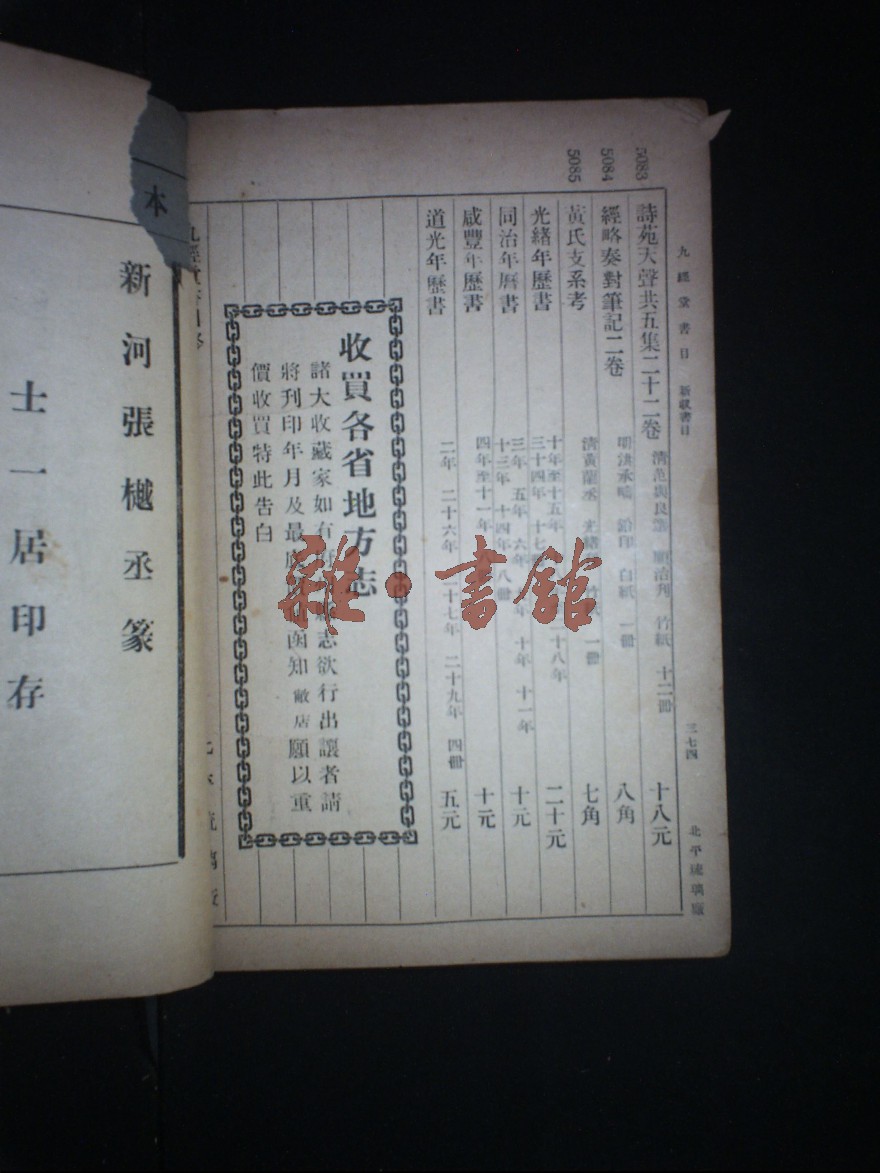 九經堂書目 新收書目 三七四 北平琉璃廠
5083 詩苑天聲共五集二十二卷 清范與良選 順治刊 竹紙 十二冊 十八元
5084 經略奏對筆記二卷 明洪承疇 鉛印 白紙 一冊 八角
5085 黃氏支系考 清黃 丞 光緒 一冊 七角
光緒年歷書 十年至十五年 三十四年 十七 十八年 二十元
同治年曆書 三年 五年 六年 年 十年 十一年 十三年 十四年 八冊 十元
咸豐年歷書 四年至十一年 十元
道光年歷書 二年 二十六年 二十七年 二十九年 四冊 五元
收買各省地方志
諸大收藏家如有 志欲行出讓者請
將刊印年月及最 函知敝店願以重
價收買特此告白
雜·書館
本
新河張樾丞篆
士一居印存